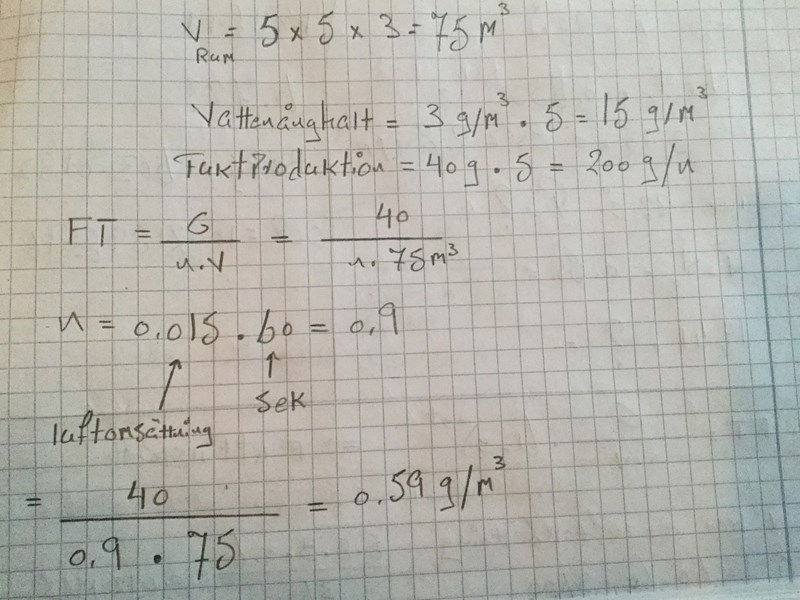 V = 5 × 5 × 3 = 75 m³
Rum
Vattenånghalt = 3 g/m³ · 5 = 15 g/m³
FuktProduktion = 40 g · 5 = 200 g/h
FT = G / n·V = 40 / n · 75 m³
n = 0.015 · 60 = 0,9
luftomsättning
sek
= 40 / 0,9 · 75 = 0.59 g/m³